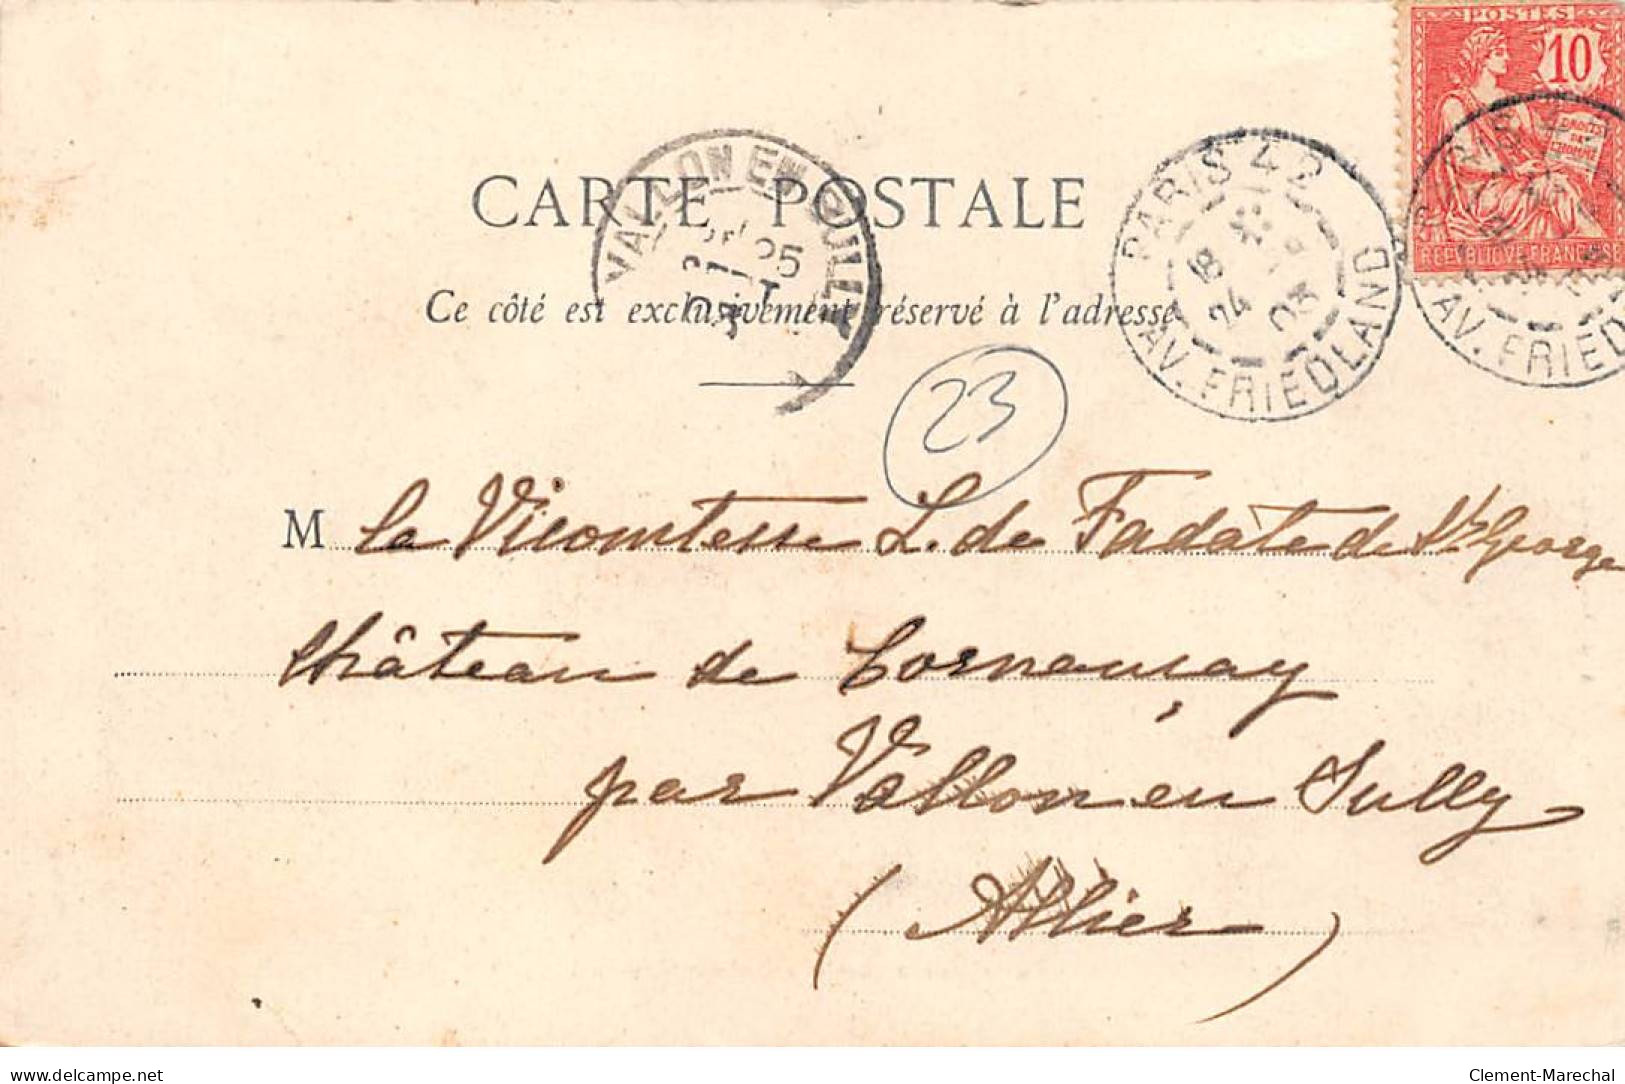 POSTES
10
DROITS DE L'HOMME
REPUBLIQUE FRANCAISE
PARIS 42
18
24 03
AV. FRIEDLAND
PARIS
AV. FRIED
VALLON EN SULLY
CARTE POSTALE
Ce côté est exclusivement réservé à l'adresse
23
M la Vicomtesse L. de Fadate de St Georges
Château de Cornançay
par Vallon en Sully
(Allier)
delcampe.net
Clement-Marechal